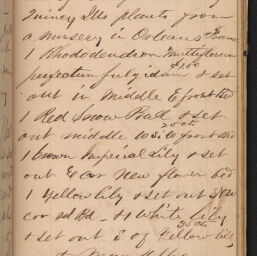 Quincy Ills plants from
a nursery in Orleans
1 Rhododendron
perfection fulgidam & set
$1.00
out in middle E front Bed
1 Red Snow Ball & set
out middle W side front Bed
1 Crown Imperial Lily & set
out E cor New flower bed
1 Yellow lily & set out
cor sd Bed & 1 White Lily
& set out E of Yellow lily